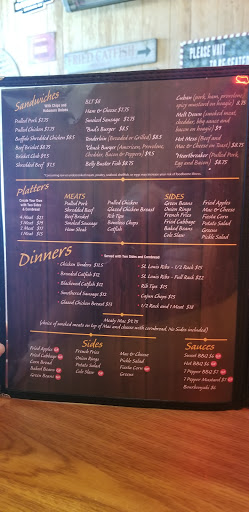 FRIED CATFISH
PLEASE
WAIT
TO BE SEATED
Sandwiches
With Chips and
Pulled Pork $7.75
Pulled Chicken $7.75
Buffalo Shredded Chicken $8.5
Beef Brisket $8.75
Brisket Club $9.5
Shredded Beef $7.5
BLT $6
Ham & Cheese $7.75
Smoked Sausage $7.75
*Bud's Burger $8.5
Tenderloin (Breaded or Grilled) $8.5
*Chuck Burger (American, Provolone,
Cheddar, Bacon & Peppers) $9.5
Belly Buster Fish $8.75
Cuban (pork, ham, provolone,
spicy mustard on hoagie) $
Melt Down (smoked meat,
cheddar, bbq sauce and
bacon on hoagie) $9
Hot Mess (Beef and
Mac & Cheese on Toast) $8.75
*Heartbreaker (Pulled Pork,
Egg and Bacon) $8.75
Platters
Create Your Own
with Two Sides
& Cornbread
4 Meat
3 Meat
2 Meat
1 Meat
MEATS
Pulled Pork
Shredded Beef
Beef Brisket
Smoked Sausage
Ham Steak
Pulled Chicken
Glazed Chicken Breast
Rib Tips
Boneless Chops
Catfish
SIDES
Green Beans
Onion Rings
French Fries
Fried Cabbage
Baked Beans
Cole Slaw
Fried Apples
Mac & Cheese
Fiesta Corn
Potato Salad
Greens
Pickle Salad
Dinners
Served with Two Sides and Cornbread
Chicken Tenders $11.5
Breaded Catfish $12
Blackened Catfish $12
Smothered Sausage $12
Glazed Chicken Breast $11
St. Louis Ribs - 1/2 Rack $15
St. Louis Ribs - Full Rack $22
Rib Tips $15
Cajun Chops $15
1/2 Rack and 1 Meat $18
Meaty Mac $9.75
(choice of smoked meats on top of Mac and cheese with cornbread. No Sides included)
Sides
Fried Apples
Fried Cabbage
Corn Bread
Baked Beans
Green Beans
French Fries
Onion Rings
Potato Salad
Cole Slaw
Mac & Cheese
Pickle Salad
Fiesta Corn
Greens
Sauces
Sweet BBQ $6
Hot BBQ $6
7 Pepper BBQ $7
7 Pepper Mustard $7
Bourbonyaki $6